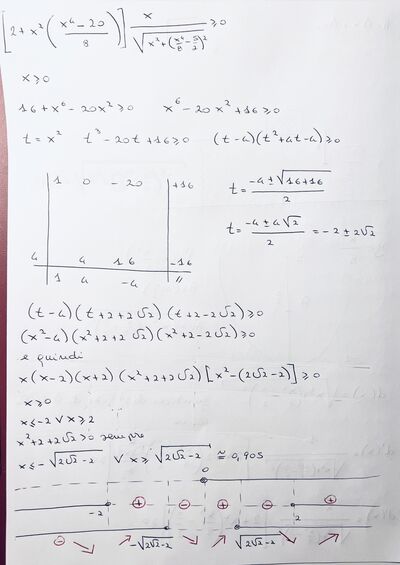 [2 + x² (x⁴ - 20 / 8)] x / √(x² + (x⁴/8 - 5/2)²) ≥ 0
x ≥ 0
16 + x⁶ - 20x² ≥ 0 x⁶ - 20x² + 16 ≥ 0
t = x² t³ - 20t + 16 ≥ 0 (t - 4)(t² + 4t - 4) ≥ 0
1 0 -20 +16
4 4 16 -16
1 4 -4 //
t = (-4 ± √(16 + 16)) / 2
t = (-4 ± 4√2) / 2 = -2 ± 2√2
(t - 4)(t + 2 + 2√2)(t + 2 - 2√2) ≥ 0
(x² - 4)(x² + 2 + 2√2)(x² + 2 - 2√2) ≥ 0
e quindi
x(x - 2)(x + 2)(x² + 2 + 2√2)[x² - (2√2 - 2)] ≥ 0
x ≥ 0
x ≤ -2 ∨ x ≥ 2
x² + 2 + 2√2 > 0 sempre
x ≤ -√(2√2 - 2) ∨ x ≥ √(2√2 - 2) ≅ 0,905
0
-2 + - + - 2 +
- ↘ ↗ -√(2√2 - 2) ↘ ↗ √(2√2 - 2) ↘ ↗